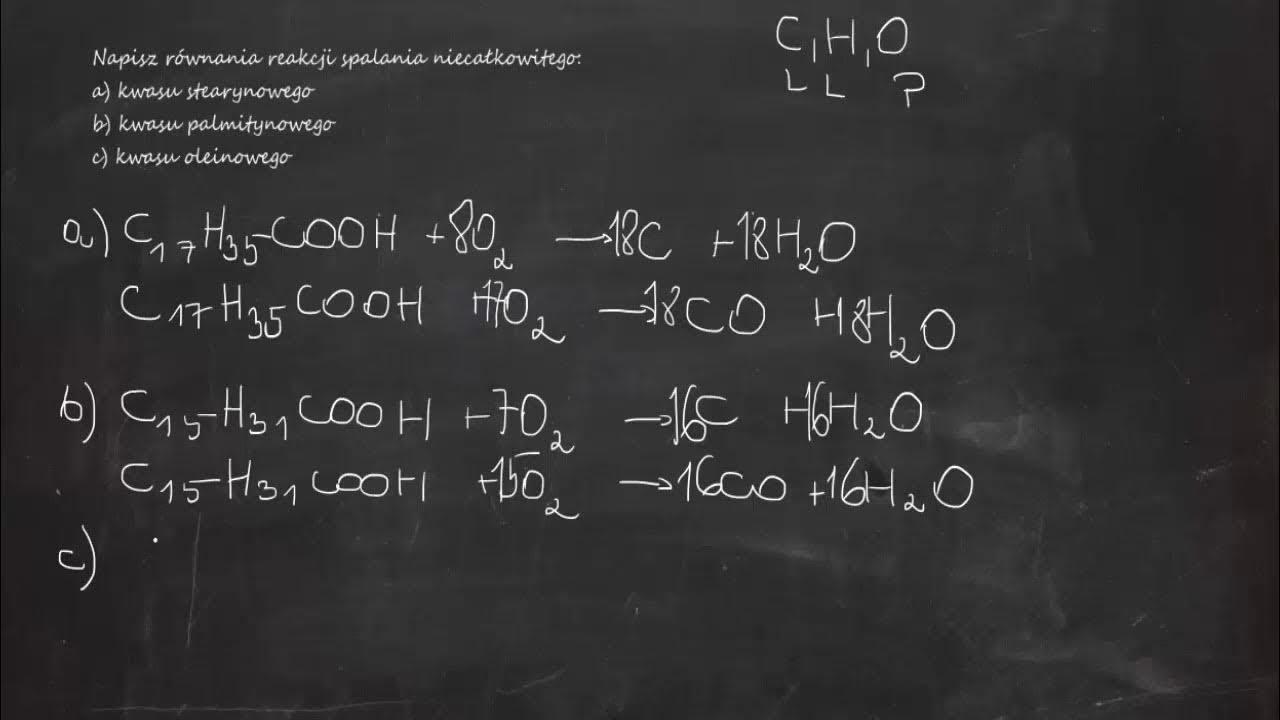 C, H, O
L L P
Napisz równania reakcji spalania niecałkowitego:
a) kwasu stearynowego
b) kwasu palmitynowego
c) kwasu oleinowego
a) C₁₇H₃₅-COOH +8O₂ → 18C +18H₂O
C₁₇H₃₅COOH +17O₂ → 18CO +18H₂O
b) C₁₅-H₃₁COOH +7O₂ → 16C +16H₂O
C₁₅-H₃₁COOH +15O₂ → 16CO +16H₂O
c)